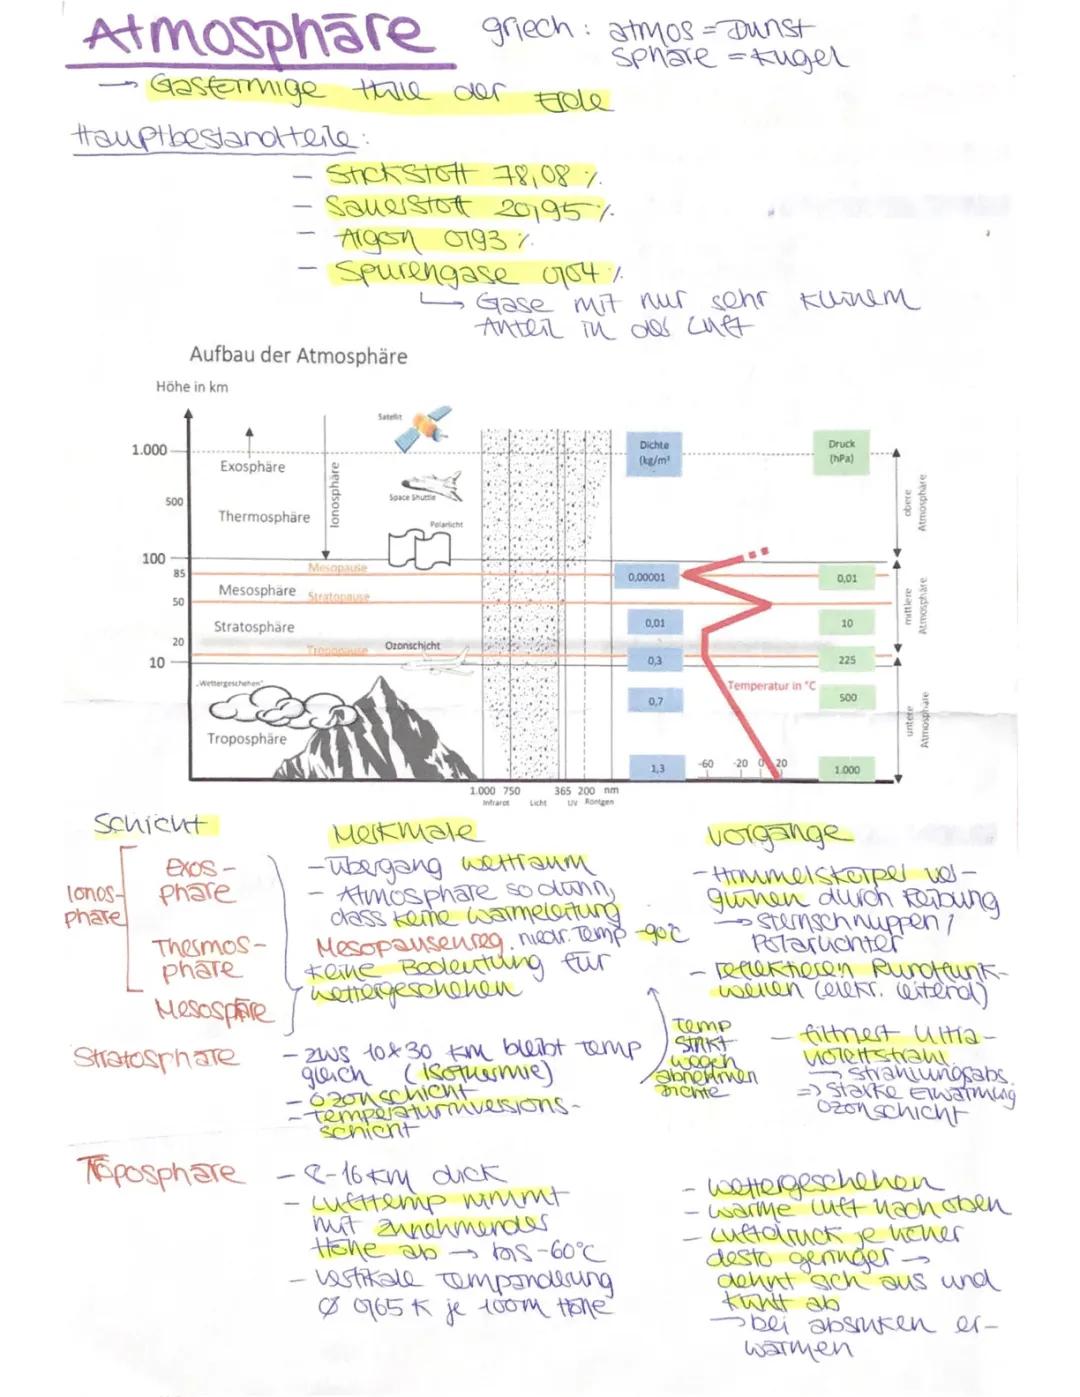 Atmosphäre griech: atmos = Dunst
sphäre = Kugel
→ Gasförmige Hülle der Erde
Hauptbestandteile:
- Stickstoff 78,08 %
- Sauerstoff 20,95 %
- Argon 0,93 %
- Spurengase 0,04 %
↳ Gase mit nur sehr kleinem
Anteil in der Luft
Aufbau der Atmosphäre
Höhe in km
1.000
500
100
85
50
20
10
Exosphäre
Thermosphäre
Ionosphäre
Mesopause
Mesosphäre
Stratopause
Stratosphäre
Tropopause
Ozonschicht
„Wettergeschehen"
Troposphäre
Satellit
Space Shuttle
Polarlicht
1.000 750 365 200 nm
Infrarot Licht UV Röntgen
Dichte
(kg/m³
0,00001
0,01
0,3
0,7
1,3
Temperatur in °C
-60 -20 0 20
Druck
(hPa)
0,01
10
225
500
1.000
obere
Atmosphäre
mittlere
Atmosphäre
untere
Atmosphäre
Schicht Merkmale Vorgänge
Ionos-
phäre
Exos-
phäre
Thermos-
phäre
Mesosphäre
- Übergang Weltraum
- Atmosphäre so dünn,
dass keine Wärmeleitung
Mesopausenreg. niedr. Temp -90°C
keine Bedeutung für
Wettergeschehen
- Himmelskörper ver-
glühen durch Reibung
→ Sternschnuppen /
Polarlichter
- reflektieren Rundfunk-
wellen (elektr. leitend)
Temp
sinkt
wegen
abnehmen
Dichte
Stratosphäre
- zws 10 & 30 km bleibt Temp
gleich (Isothermie)
- Ozonschicht
- Temperaturinversions-
schicht
- filtriert Ultra-
violettstrahl
→ Strahlungsabs.
=> starke Erwärmung
Ozonschicht
Troposphäre
- 8-16 km dick
- Lufttemp nimmt
mit zunehmender
Höhe ab → bis -60°C
- vertikale Tempänderung
Ø 0,65 K je 100m Höhe
- Wettergeschehen
- warme Luft nach oben
- Luftdruck je höher
desto geringer →
dehnt sich aus und
kühlt ab
→ bei absinken er-
wärmen